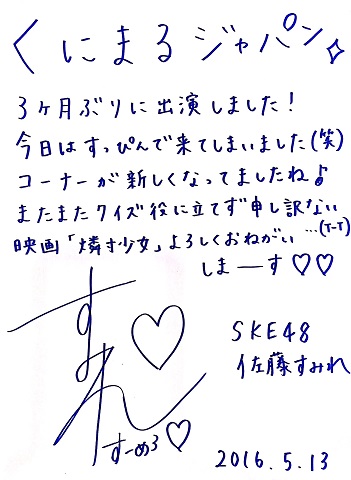 くにまるジャパン✧
3ヶ月ぶりに出演しました!
今日はすっぴんで来てしまいました(笑)
コーナーが新しくなってましたね♪
またまたクイズ役に立てず申し訳ない…(T-T)
映画「燐寸少女」よろしくおねがい
しまーす♡♡
すみれ♡
すーめろ♡
SKE48
佐藤すみれ
2016.5.13